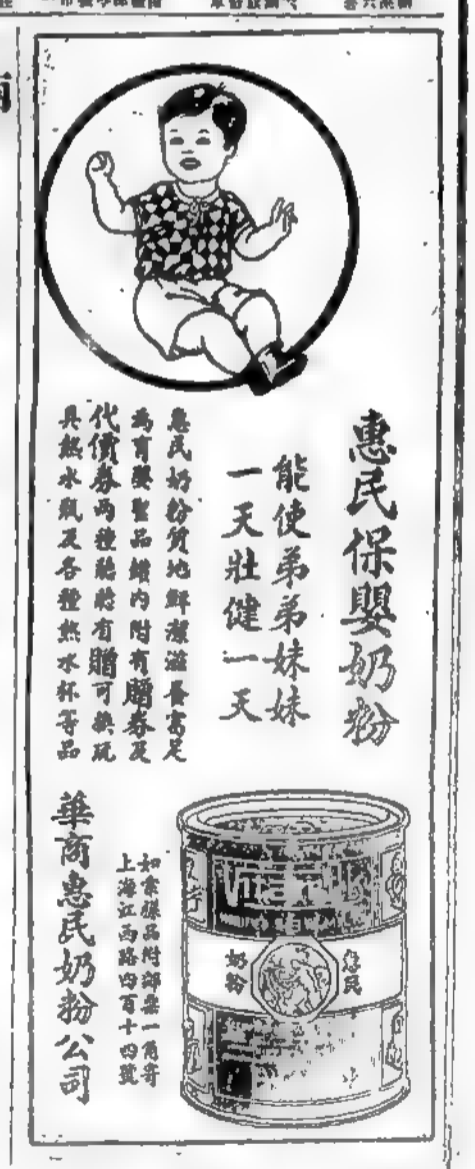 惠民保嬰奶粉
能使弟弟妹妹
一天壯健一天
惠民奶粉質地鮮潔滋養富足
為育嬰聖品罐內附有贈券及
代價券兩種聽聽有贈可換玩
具熱水瓶及各種熱水杯等品
惠民
奶粉
如索樣品附郵票一角寄
上海江西路四百十四號
華商惠民奶粉公司